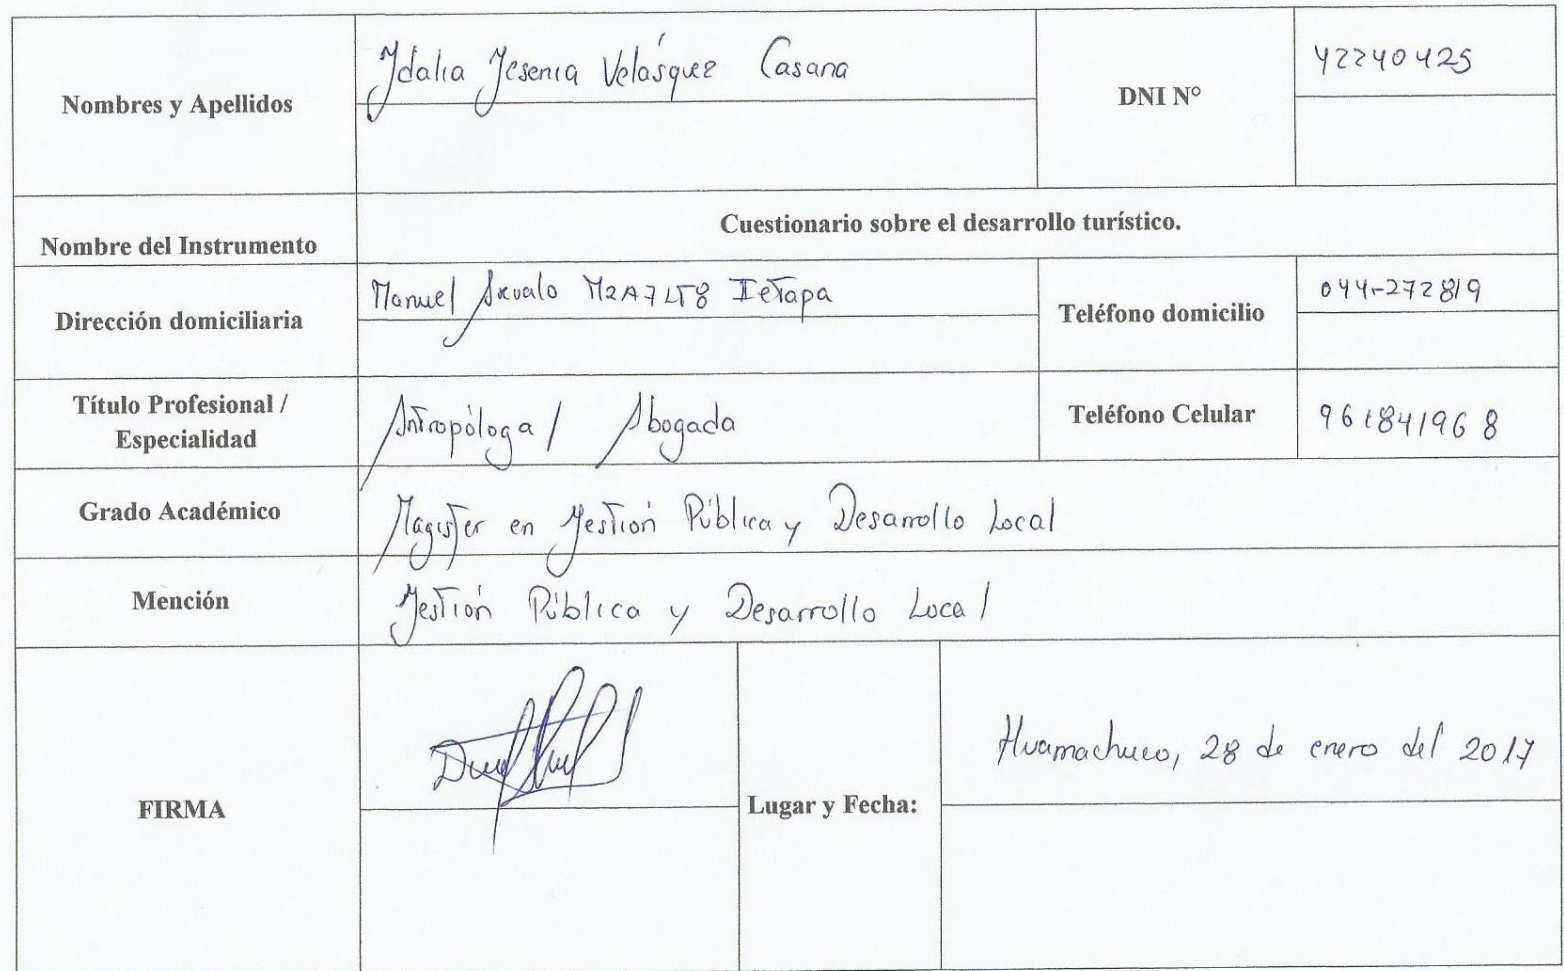 Nombres y Apellidos
Ydalia Yesenia Velásquez Casana
DNI N°
42240425
Nombre del Instrumento
Cuestionario sobre el desarrollo turístico.
Dirección domiciliaria
Manuel Arevalo MzA7LT8 II eTapa
Teléfono domicilio
044-272819
Título Profesional /
Especialidad
Antropóloga / Abogada
Teléfono Celular
961841968
Grado Académico
Magister en Gestión Pública y Desarrollo Local
Mención
Gestión Pública y Desarrollo Local
FIRMA
Lugar y Fecha:
Huamachuco, 28 de enero del 2017